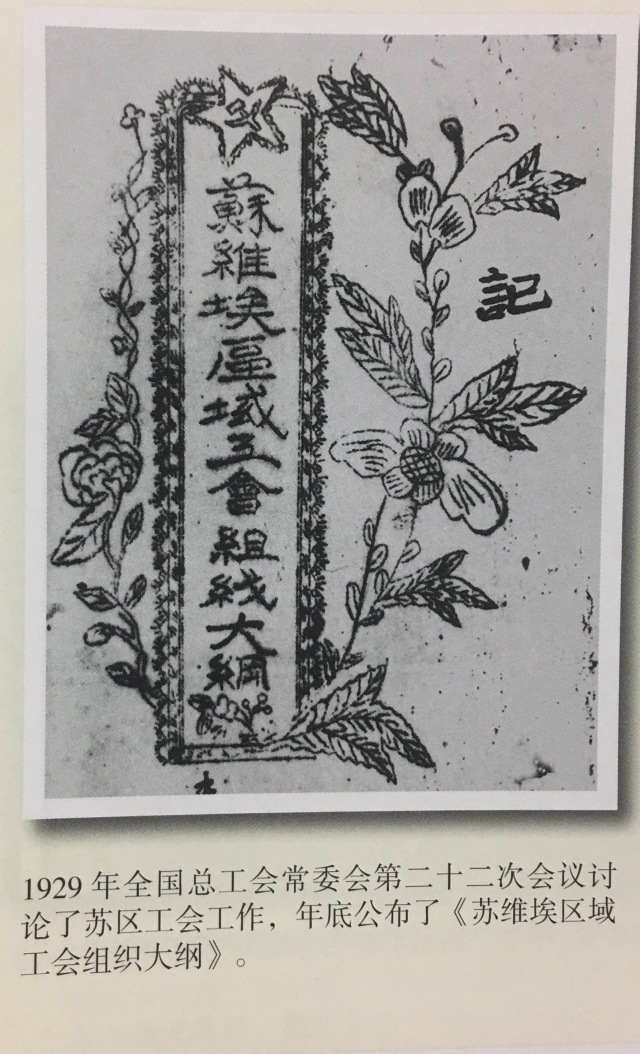 蘇維埃區域工會組织大綱
記
1929 年全国总工会常委会第二十二次会议讨
论了苏区工会工作，年底公布了《苏维埃区域
工会组织大纲》。